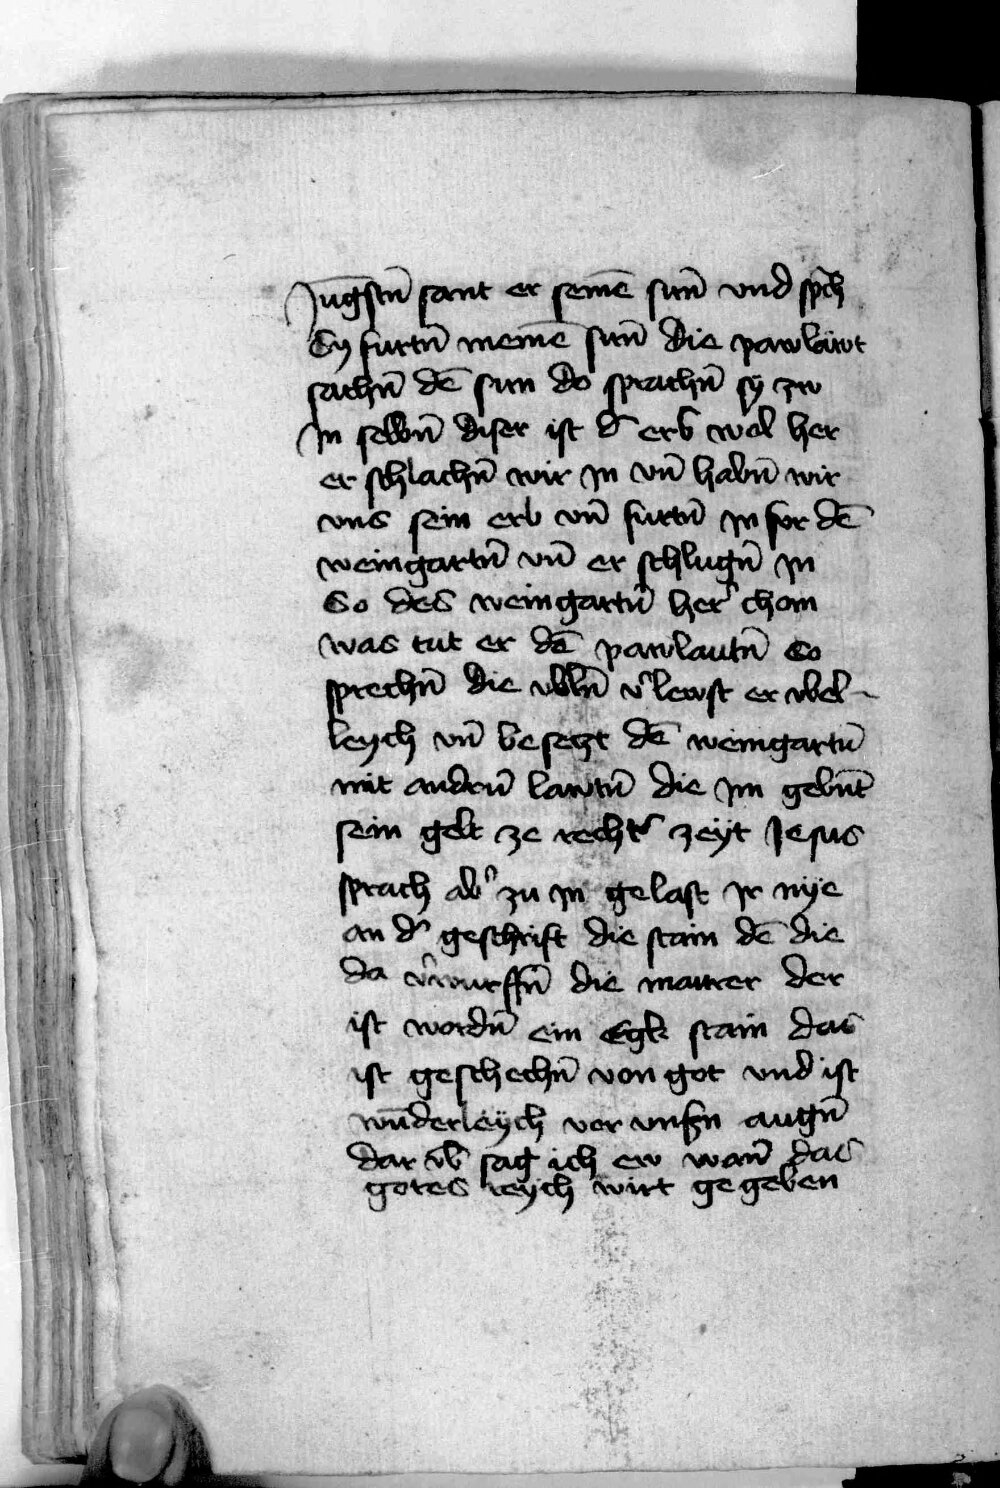 Jūgstn̄ sant er seinē sun̄ vnd sp̄ch
Sy furtn̄ meinē sun̄ die pawläwt
sachn̄ dē sun do sprachn̄ sÿ zw
Jn selbn̄ diser ist d͛ erb wol her
er schlachn̄ wir jn vn̄ habn̄ wir
vns sein erb vn̄ furtn̄ jn for dē
weingartn̄ vn̄ er schlugn̄ jn
So des weingartn̄ her͛ chom
was tut er dē pawlautn̄ So
sprechn̄ die vbln̄ v͛lewst er vbel-
leych vn̄ beseczt dē weingartn̄
mit andrn̄ lawtn̄ die jm gebn̄t
sein gelt ze recht͛ zeÿt Jesus
sprach ab͛ zu jn gelast jr nÿe
an d͛ geschrift die stain dē die
da v͛wurffn̄ die maurer der
ist wordn̄ ein Egk stain das
ist geschechn̄ von got vnd ist
wūderleÿch vor vnsrn augn̄
dar vb̄ sag ich ew wan̄ das
gotes reÿch wirt gegeben